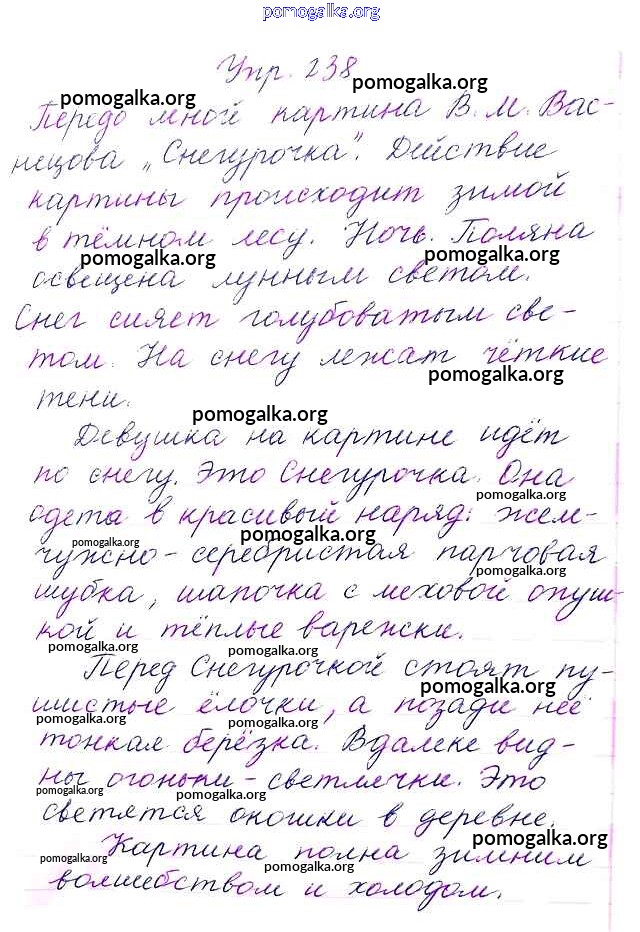 pomogalka.org
Упр. 238
pomogalka.org
pomogalka.org
Передо мной картина В. М. Вас-
нецова „Снегурочка". Действие
картины происходит зимой
в тёмном лесу. Ночь. Поляна
pomogalka.org
pomogalka.org
освещена лунным светом.
Снег сияет голубоватым све-
том. На снегу лежат чёткие
pomogalka.org
тени.
pomogalka.org
Девушка на картине идёт
по снегу. Это Снегурочка. Она
pomogalka.org
одета в красивый наряд: жем-
pomogalka.org
pomogalka.org
чужно-серебристая парчовая
pomogalka.org
шубка, шапочка с меховой опуш
кой и тёплые варежски.
pomogalka.org
pomogalka.org
Перед Снегурочкой стоят пу-
pomogalka.org
шистые ёлочки, а позади неё
pomogalka.org
pomogalka.org
тонкая берёзка. Вдалеке вид-
ны огоньки - светлячки. Это
pomogalka.org
pomogalka.org
светятся окошки в деревне.
pomogalka.org
Картина полна зимним
pomogalka.org
pomogalka.org
волшебством и холодом.